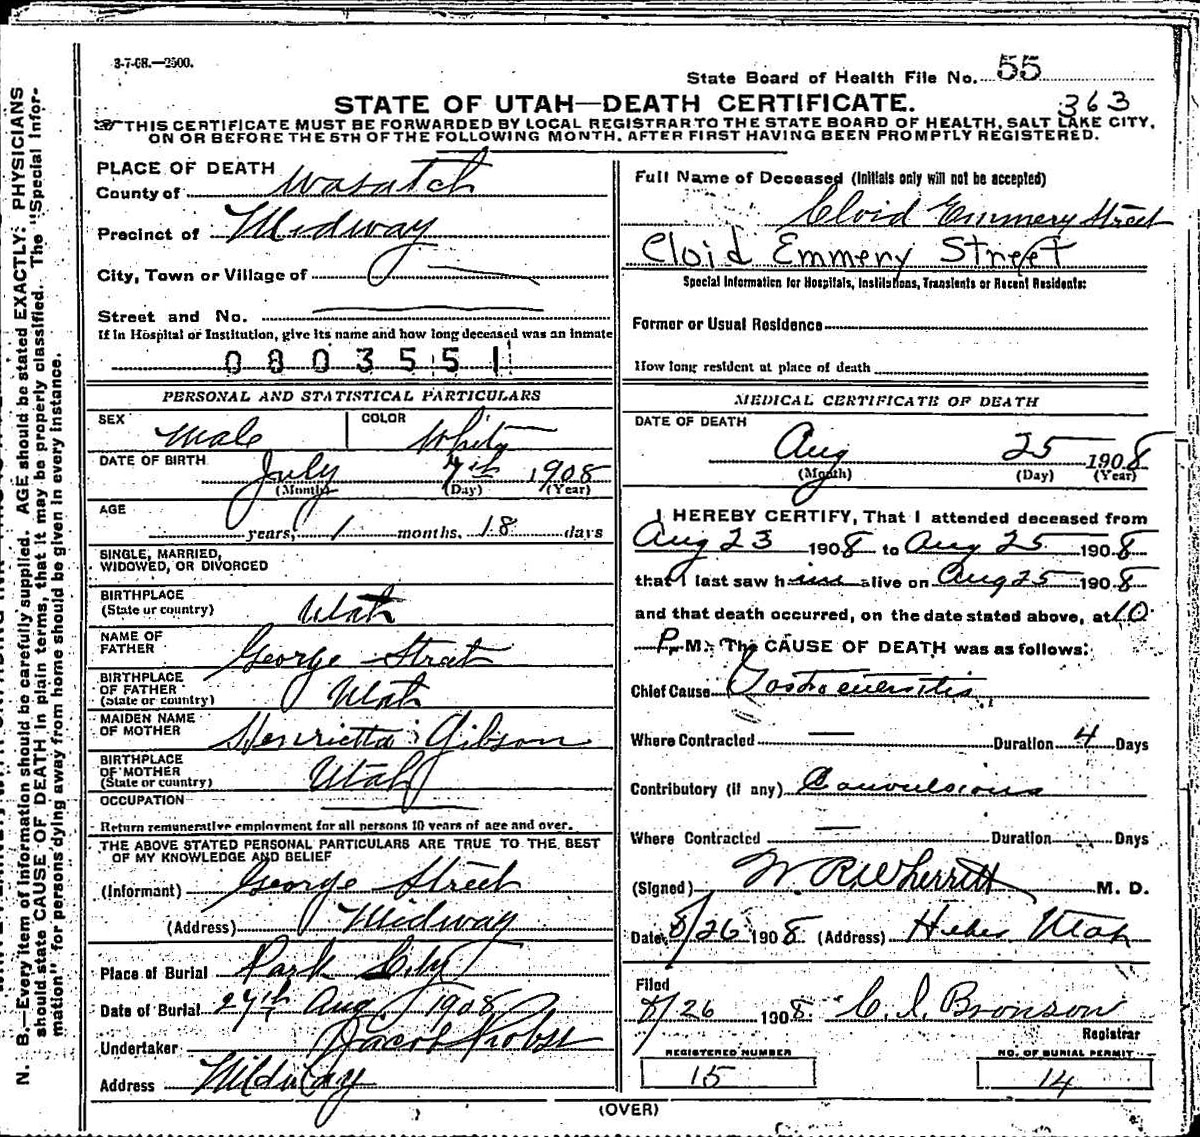 3-7-08.—2500.
State Board of Health File No. 55
STATE OF UTAH—DEATH CERTIFICATE.
363
THIS CERTIFICATE MUST BE FORWARDED BY LOCAL REGISTRAR TO THE STATE BOARD OF HEALTH, SALT LAKE CITY,
ON OR BEFORE THE 5TH OF THE FOLLOWING MONTH, AFTER FIRST HAVING BEEN PROMPTLY REGISTERED.
N. B.—Every item of information should be carefully supplied. AGE should be stated EXACTLY; PHYSICIANS
should state CAUSE OF DEATH in plain terms, that it may be properly classified. The "Special Infor-
mation" for persons dying away from home should be given in every instance.
PLACE OF DEATH
County of Wasatch
Precinct of Midway
City, Town or Village of
Street and No.
If in Hospital or Institution, give its name and how long deceased was an inmate
0803551
PERSONAL AND STATISTICAL PARTICULARS
SEX Male COLOR White
DATE OF BIRTH July 7th 1908
(Month) (Day) (Year)
AGE
years, 1 months, 18 days
SINGLE, MARRIED,
WIDOWED, OR DIVORCED
BIRTHPLACE
(State or country) Utah
NAME OF
FATHER George Street
BIRTHPLACE
OF FATHER
(State or country) Utah
MAIDEN NAME
OF MOTHER Henrietta Gibson
BIRTHPLACE
OF MOTHER
(State or country) Utah
OCCUPATION
Return remunerative employment for all persons 10 years of age and over.
THE ABOVE STATED PERSONAL PARTICULARS ARE TRUE TO THE BEST
OF MY KNOWLEDGE AND BELIEF
(Informant) George Street
(Address) Midway
Place of Burial Park City
Date of Burial 27th Aug 1908
Undertaker Jacob Probst
Address Midway
Full Name of Deceased (Initials only will not be accepted)
Cloid Emmery Street
Cloid Emmery Street
Special Information for Hospitals, Institutions, Transients or Recent Residents:
Former or Usual Residence
How long resident at place of death
MEDICAL CERTIFICATE OF DEATH
DATE OF DEATH
Aug 25 1908
(Month) (Day) (Year)
I HEREBY CERTIFY, That I attended deceased from
Aug 23 1908 to Aug 25 1908
that I last saw him alive on Aug 25 1908
and that death occurred, on the date stated above, at 10
P. M. The CAUSE OF DEATH was as follows:
Chief Cause Gastroenteritis
Where Contracted — Duration 4 Days
Contributory (if any) Convulsions
Where Contracted — Duration Days
(Signed) W. R. Wherritt M. D.
Date 8/26 1908 (Address) Heber Utah
Filed
8/26 1908 C. I. Bronson
Registrar
REGISTERED NUMBER
15
NO. OF BURIAL PERMIT
14
(OVER)